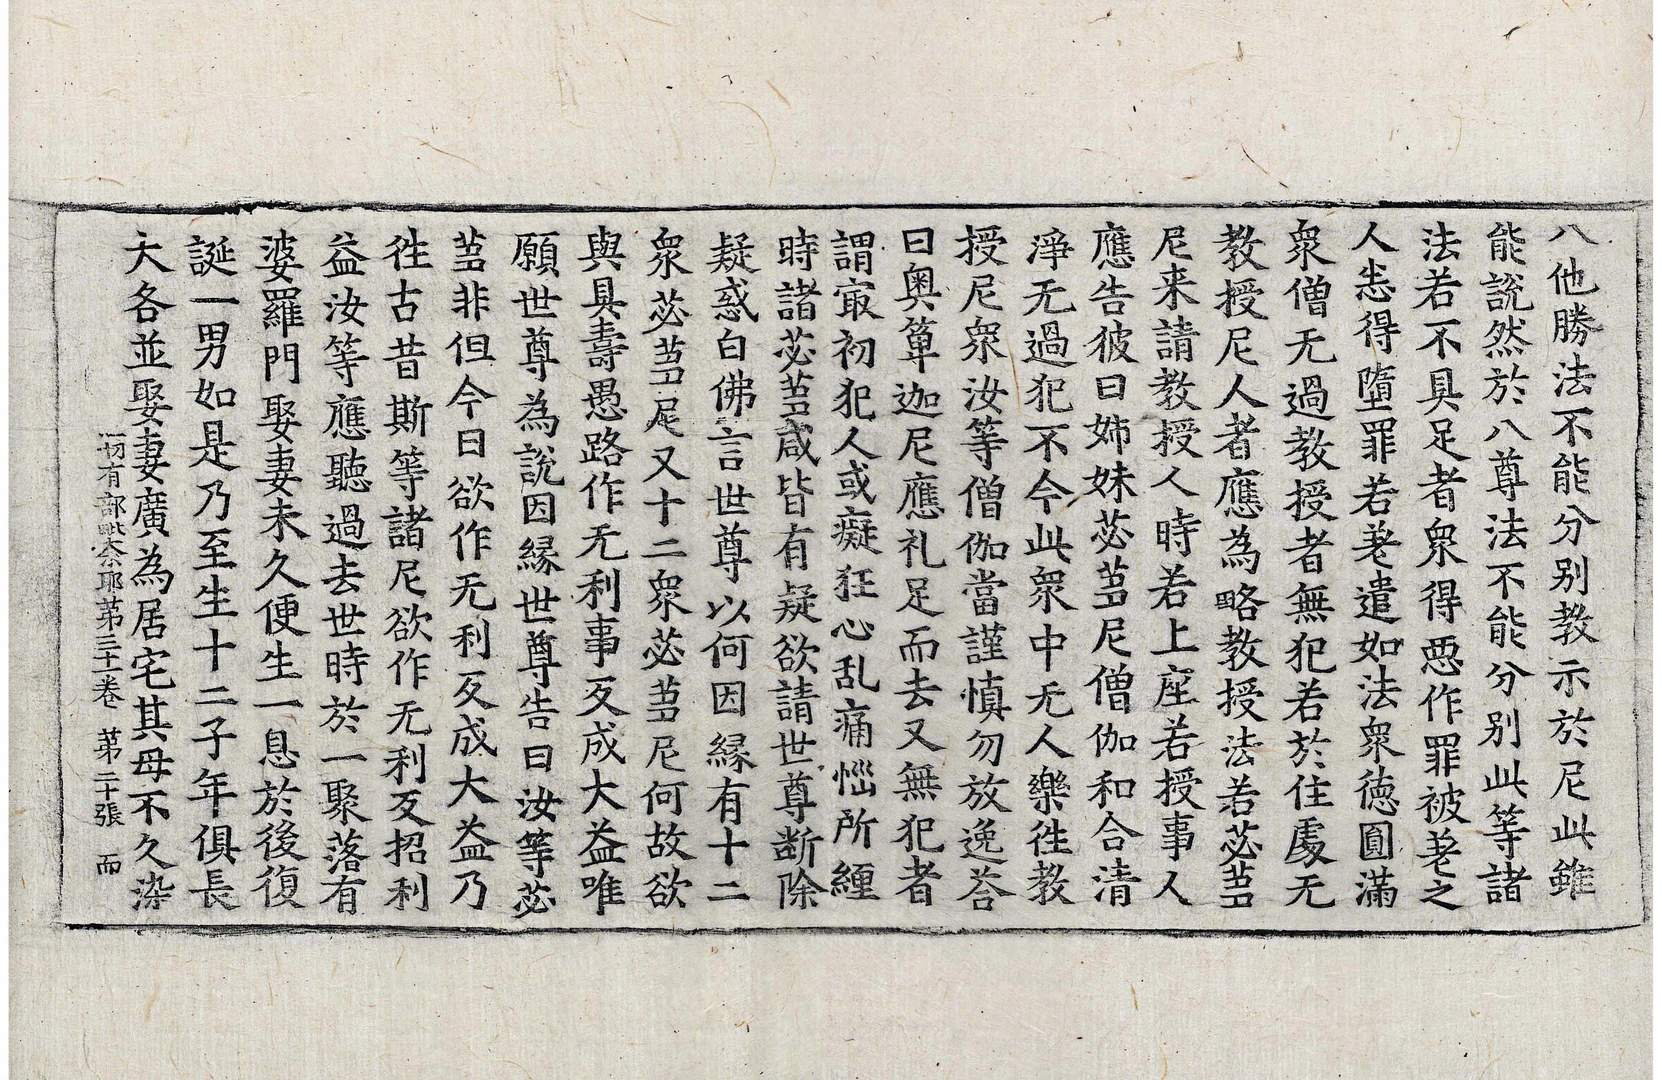 八他勝法不能分別教示於尼此雖
能說然於八尊法不能分別此等諸
法若不具足者眾得惡作罪被差之
人悉得墮罪若差遣如法眾德圓滿
眾僧无過教授者無犯若於住處无
教授尼人者應為略教授法若苾芻
尼来請教授人時若上座若授事人
應告彼曰姉妹苾芻尼僧伽和合清
淨无過犯不今此眾中无人樂徃教
授尼眾汝等僧伽當謹慎勿放逸荅
曰奧箄迦尼應礼足而去又無犯者
謂㝡初犯人或癡狂心乱痛惱所纏
時諸苾芻咸皆有疑欲請世尊断除
疑惑白佛言世尊以何因縁有十二
眾苾芻尼又十二眾苾芻尼何故欲
與具壽愚路作无利事反成大益唯
願世尊為說因縁世尊告曰汝等苾
芻非但今日欲作无利反成大益乃
徃古昔斯等諸尼欲作无利反招利
益汝等應聽過去世時於一聚落有
婆羅門娶妻未久便生一息於後復
誕一男如是乃至生十二子年俱長
大各並娶妻廣為居宅其母不久染
一切有部毗奈耶苐三十一卷 苐二十張 而